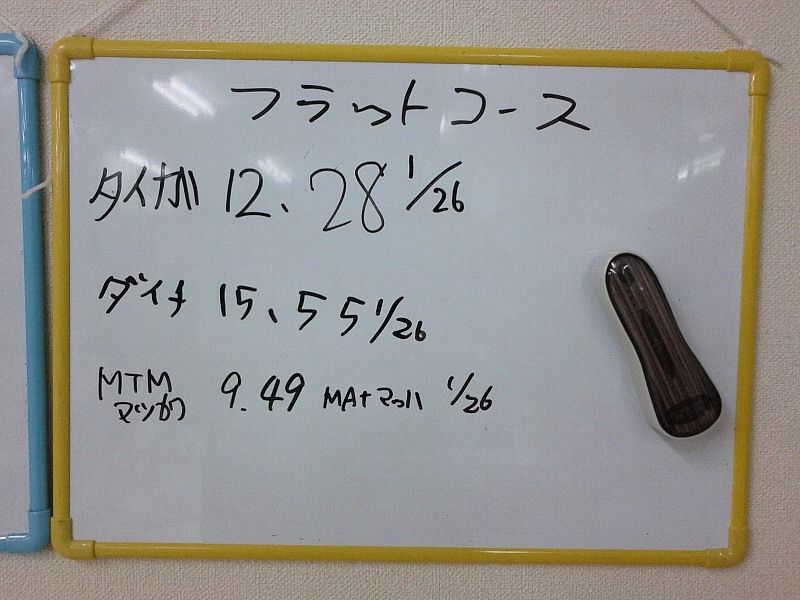 フラットコース
タイガ 12.28 1/26
ダイナ 15.55 1/26
MTM 9.49 MA+マッハ 1/26
マツガワ